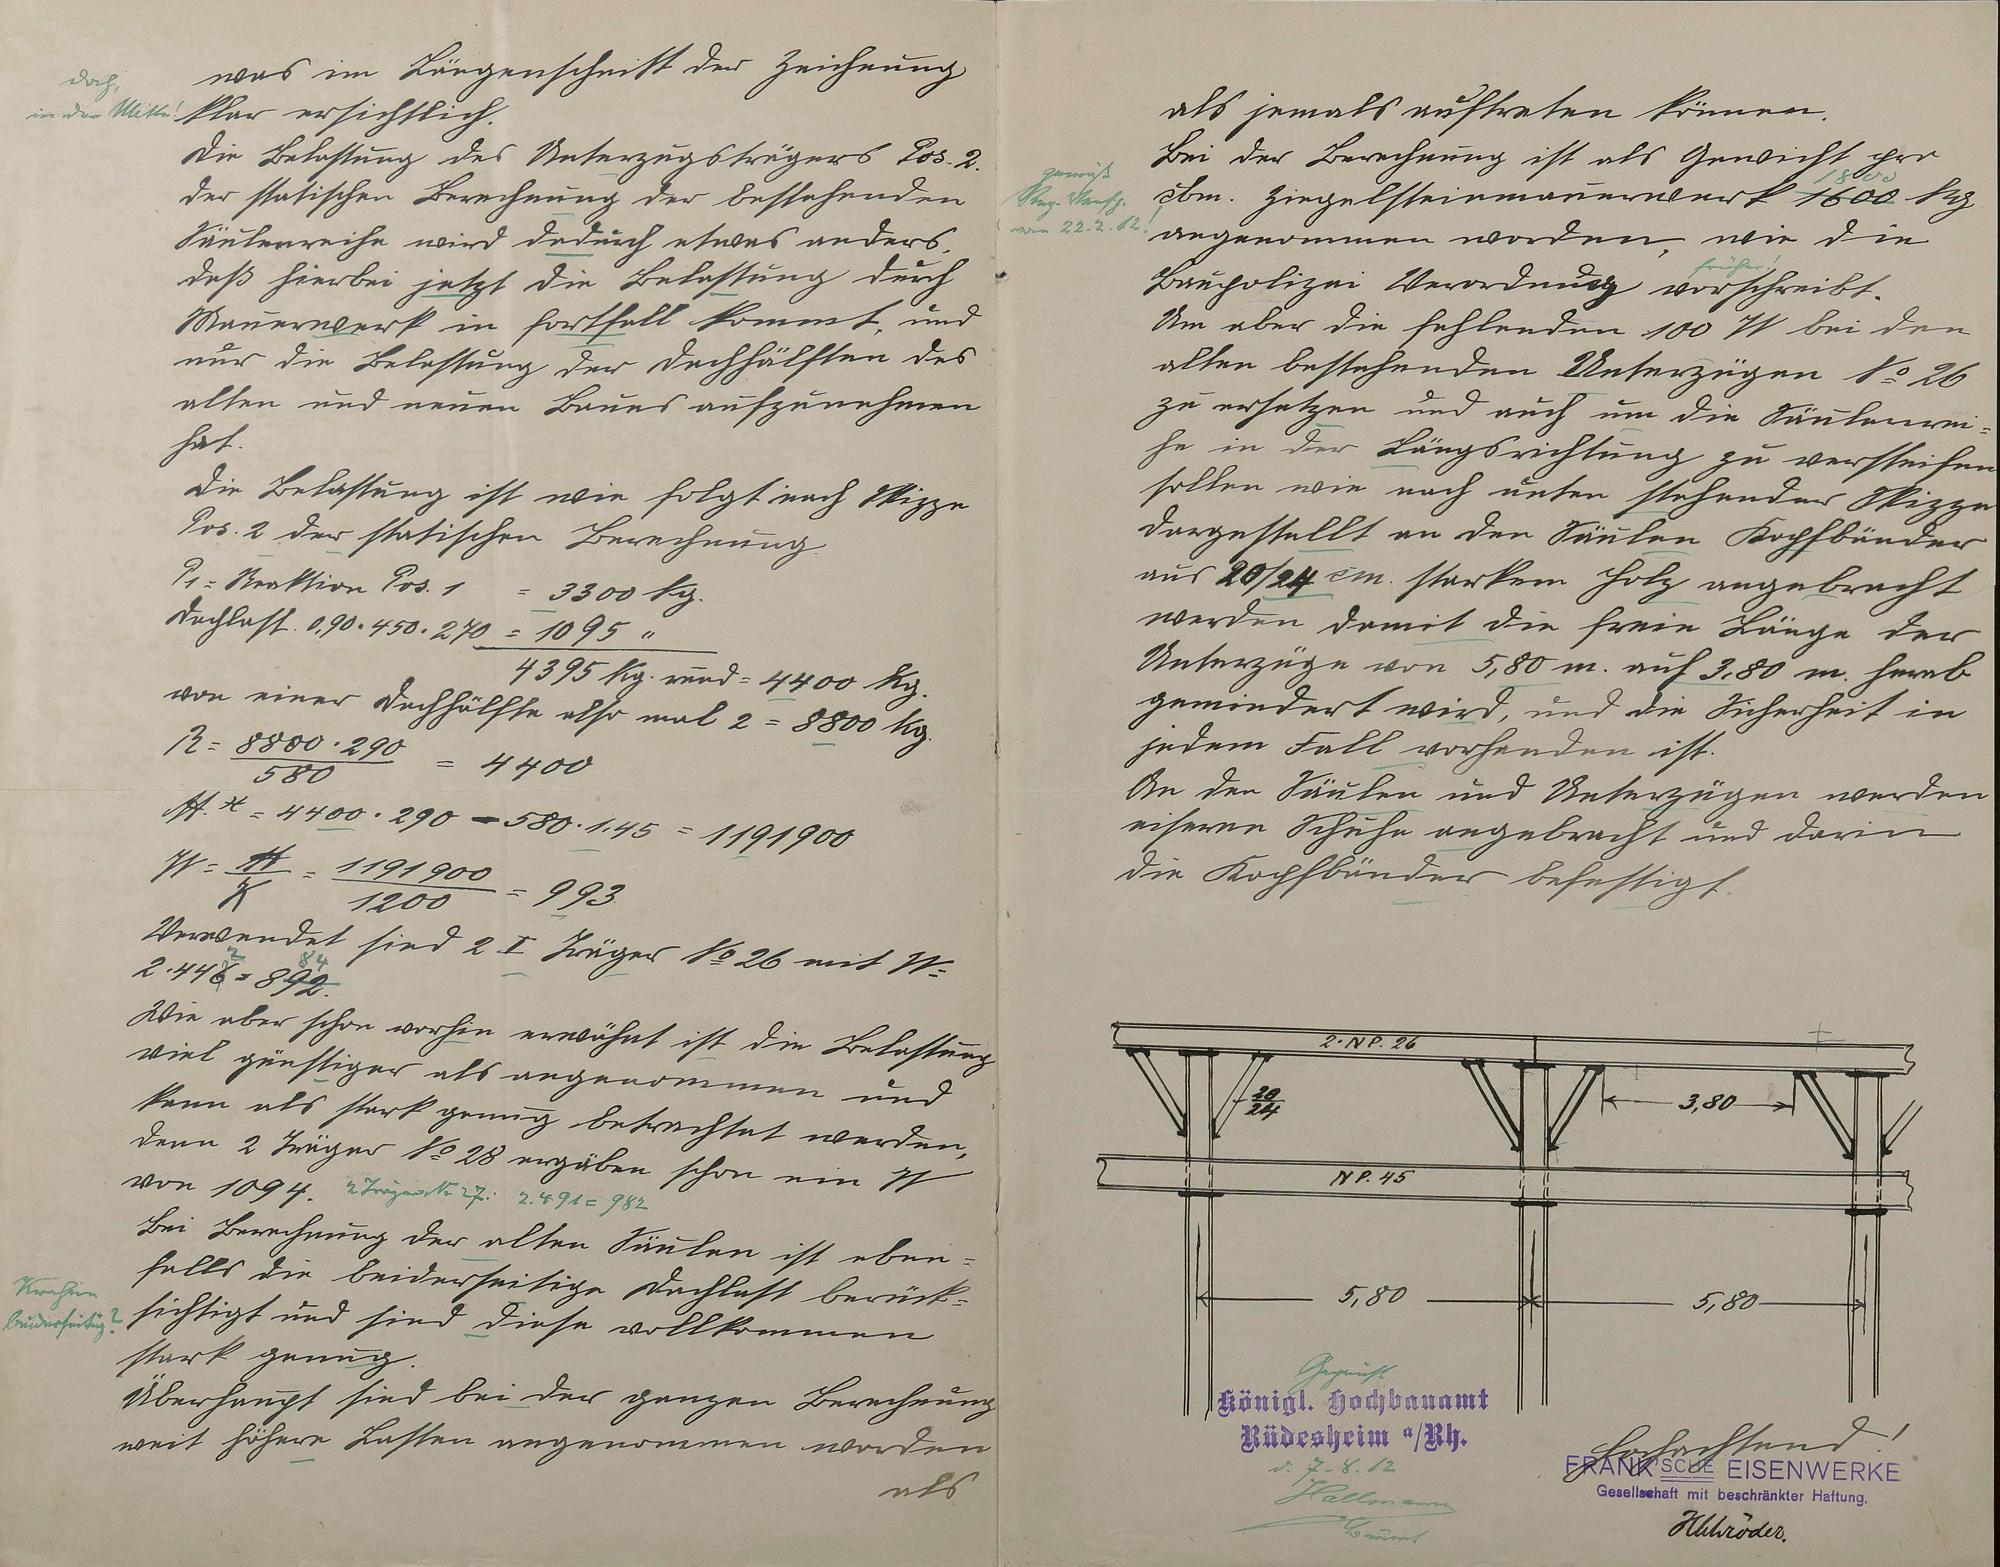 was im Längenschnitt der Zeichnung
doch,
in der Mitte!
klar ersichtlich.
Die Belastung des Unterzugsträgers Pos. 2.
der statischen Berechnung der bestehenden
Säulenreihe wird dadurch etwas anders,
daß hierbei jetzt die Belastung durch
Mauerwerk in fortfall kommt, und
nur die Belastung der Dachhälften des
alten und neuen Baues aufzunehmen
hat.
Die Belastung ist wie folgt nach Skizze
Pos. 2 der statischen Berechnung.
P1 = Reaktion Pos. 1 = 3300 kg.
Dachlast. 0,90 · 450 · 270 = 1095 "
4395 kg. rund = 4400 kg.
von einer Dachhälfte also mal 2 = 8800 kg.
R = 8800 · 290 / 580 = 4400
M.x = 4400 · 290 – 580 · 1,45 = 1191900
W = M / K = 1191900 / 1200 = 993
Verwendet sind 2 I Träger No 26 mit W =
2 84
2 · 446 = 892.
Wie aber schon vorhin erwähnt ist die Belastung
viel günstiger als angenommen und
kann als stark genug betrachtet werden,
denn 2 Träger No 28 ergäben schon ein W
von 1094. 2 Träger No 27: 2 · 491 = 982
Bei Berechnung der alten Säulen ist eben=
falls die beiderseitige Dachlast berück=
beiderseitig?
sichtigt und sind diese vollkommen
stark genug.
Überhaupt sind bei der ganzen Berechnung
weit höhere Lasten angenommen worden
als
als jemals auftreten können.
Bei der Berechnung ist als Gewicht pro
gemäß
von 22.2.12!
1800
cbm. Ziegelsteinmauerwerk 1600 kg
angenommen worden, wie die
früher!
Baupolizei Verordnung vorschreibt.
Um aber die fehlenden 100 W bei den
alten bestehenden Unterzügen No 26
zu ersetzen und auch um die Säulenrei=
he in der Längsrichtung zu versteifen
sollen wie nach unten stehender Skizze
dargestellt an den Säulen Kopfbänder
aus 20/24 cm. starkem Holz angebracht
werden damit die freie Länge der
Unterzüge von 5,80 m. auf 3,80 m. herab
gemindert wird, und die Sicherheit in
jedem Fall vorhanden ist.
An den Säulen und Unterzügen werden
eiserne Schuhe angebracht und darin
die Kopfbänder befestigt.
2 · NP. 26
20/24
3,80
NP. 45
5,80
5,80
Geprüft
Königl. Hochbauamt
Rüdesheim a/Rh.
d. 7.8.12
Hallmann
Baurat
Hochachtend!
FRANK'SCHE EISENWERKE
Gesellschaft mit beschränkter Haftung.
HSchröder.